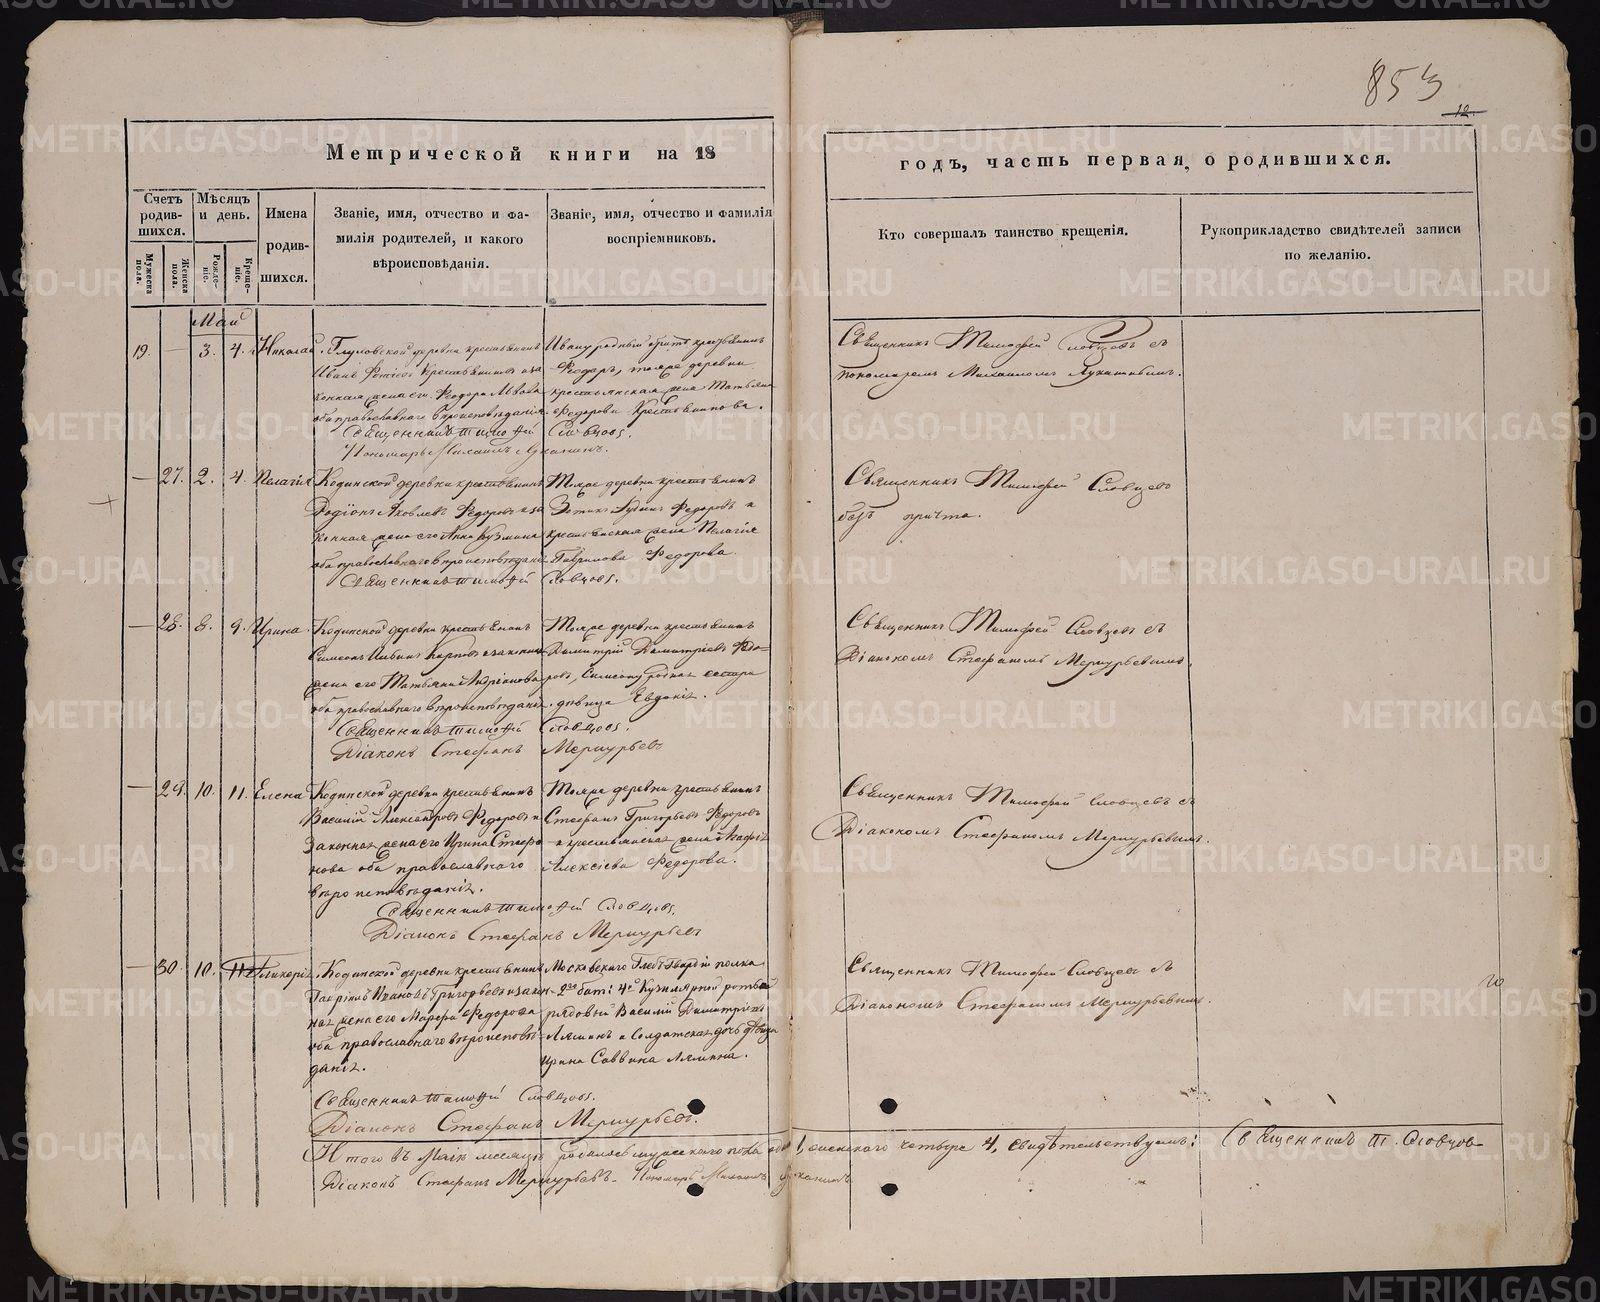 853
12.
Метрической книги на 18
годъ, часть первая, о родившихся.
Счетъ родившихся.
Мѣсяцъ и день.
Имена родившихся.
Званіе, имя, отчество и фамилія родителей, и какого вѣроисповѣданія.
Званіе, имя, отчество и фамилія воспріемниковъ.
Кто совершалъ таинство крещенія.
Рукоприкладство свидѣтелей записи по желанію.
Мужеска пола.
Женска пола.
Рожденіе.
Крещеніе.
Май
19. — 3. 4. Николай.
деревни крестьянинъ
Иванъ
законная жена его Ѳеодора
оба православнаго вѣроисповѣданія.
Ивану родный братъ крестьянинъ
Ѳедоръ, тояже деревни
крестьянская жена Татьяна
Ѳедорова
Священникъ Тимоѳей Словцовъ.
Пономарь Михаилъ
Священникъ Тимофей Словцовъ съ
пономаремъ Михаиломъ
— 27. 2. 4. Пелагія
Кодинской деревни крестьянинъ
Родіонъ Яковлевъ Ѳедоровъ и за
конная жена его Анна Кузмина
оба православнаго вѣроисповѣданія
Тояже деревни крестьянинъ
Ѳедоровъ и
крестьянская жена Пелагія
Гаврилова Ѳедорова.
Священникъ Тимоѳей Словцовъ.
Священникъ Тимофей Словцовъ
безъ причта.
— 28. 8. 9. Ирина.
Кодинской деревни крестьянинъ
Симеонъ
жена его Татьяна Андріанова
оба православнаго вѣроисповѣданія.
Тояже деревни крестьянинъ
Димитрій Димитріевъ Ѳедо-
ровъ, Симеону родная сестра
дѣвица Евдокія.
Священникъ Тимоѳей Словцовъ.
Діаконъ Стефанъ Меркурьевъ
Священникъ Тимофей Словцовъ съ
Діакономъ Стефаномъ Меркурьевымъ.
— 29. 10. 11. Елена
Кодинской деревни крестьянинъ
Василій Александровъ Ѳедоровъ и
законная жена его Ирина Стефа
нова оба православнаго
вѣроисповѣданія.
Тояже деревни крестьянинъ
Стефанъ Григорьевъ Ѳедоровъ
и крестьянская жена Агафія
Алексіева Ѳедорова.
Священникъ Тимоѳей Словцовъ.
Діаконъ Стефанъ Меркурьевъ
Священникъ Тимофей Словцовъ съ
Діакономъ Стефаномъ Меркурьевымъ.
— 30. 10. 11. Гликерія.
Кодинской деревни крестьянинъ
Гавріилъ Ивановъ Григорьевъ и закон-
ная жена его Марфа Ѳедорова
оба православнаго вѣроисповѣ-
данія.
Московскаго Лейбъ Гвардіи полка
2го бат: 4й роты
рядовый Василій Димитріевъ
Ляминъ и солдатская дочь дѣвица
Ирина Саввина Лямина.
Священникъ Тимоѳей Словцовъ.
Діаконъ Стефанъ Меркурьевъ.
Священникъ Тимофей Словцовъ съ
Діакономъ Стефаномъ Меркурьевымъ.
Итого въ Маіѣ мѣсяцѣ родилось мужескаго пола 1, женскаго четыре 4, свидѣтельствуемъ: Священникъ Т. Словцовъ
Діаконъ Стефанъ Меркурьевъ. Пономарь Михаилъ
METRIKI.GASO-URAL.RU